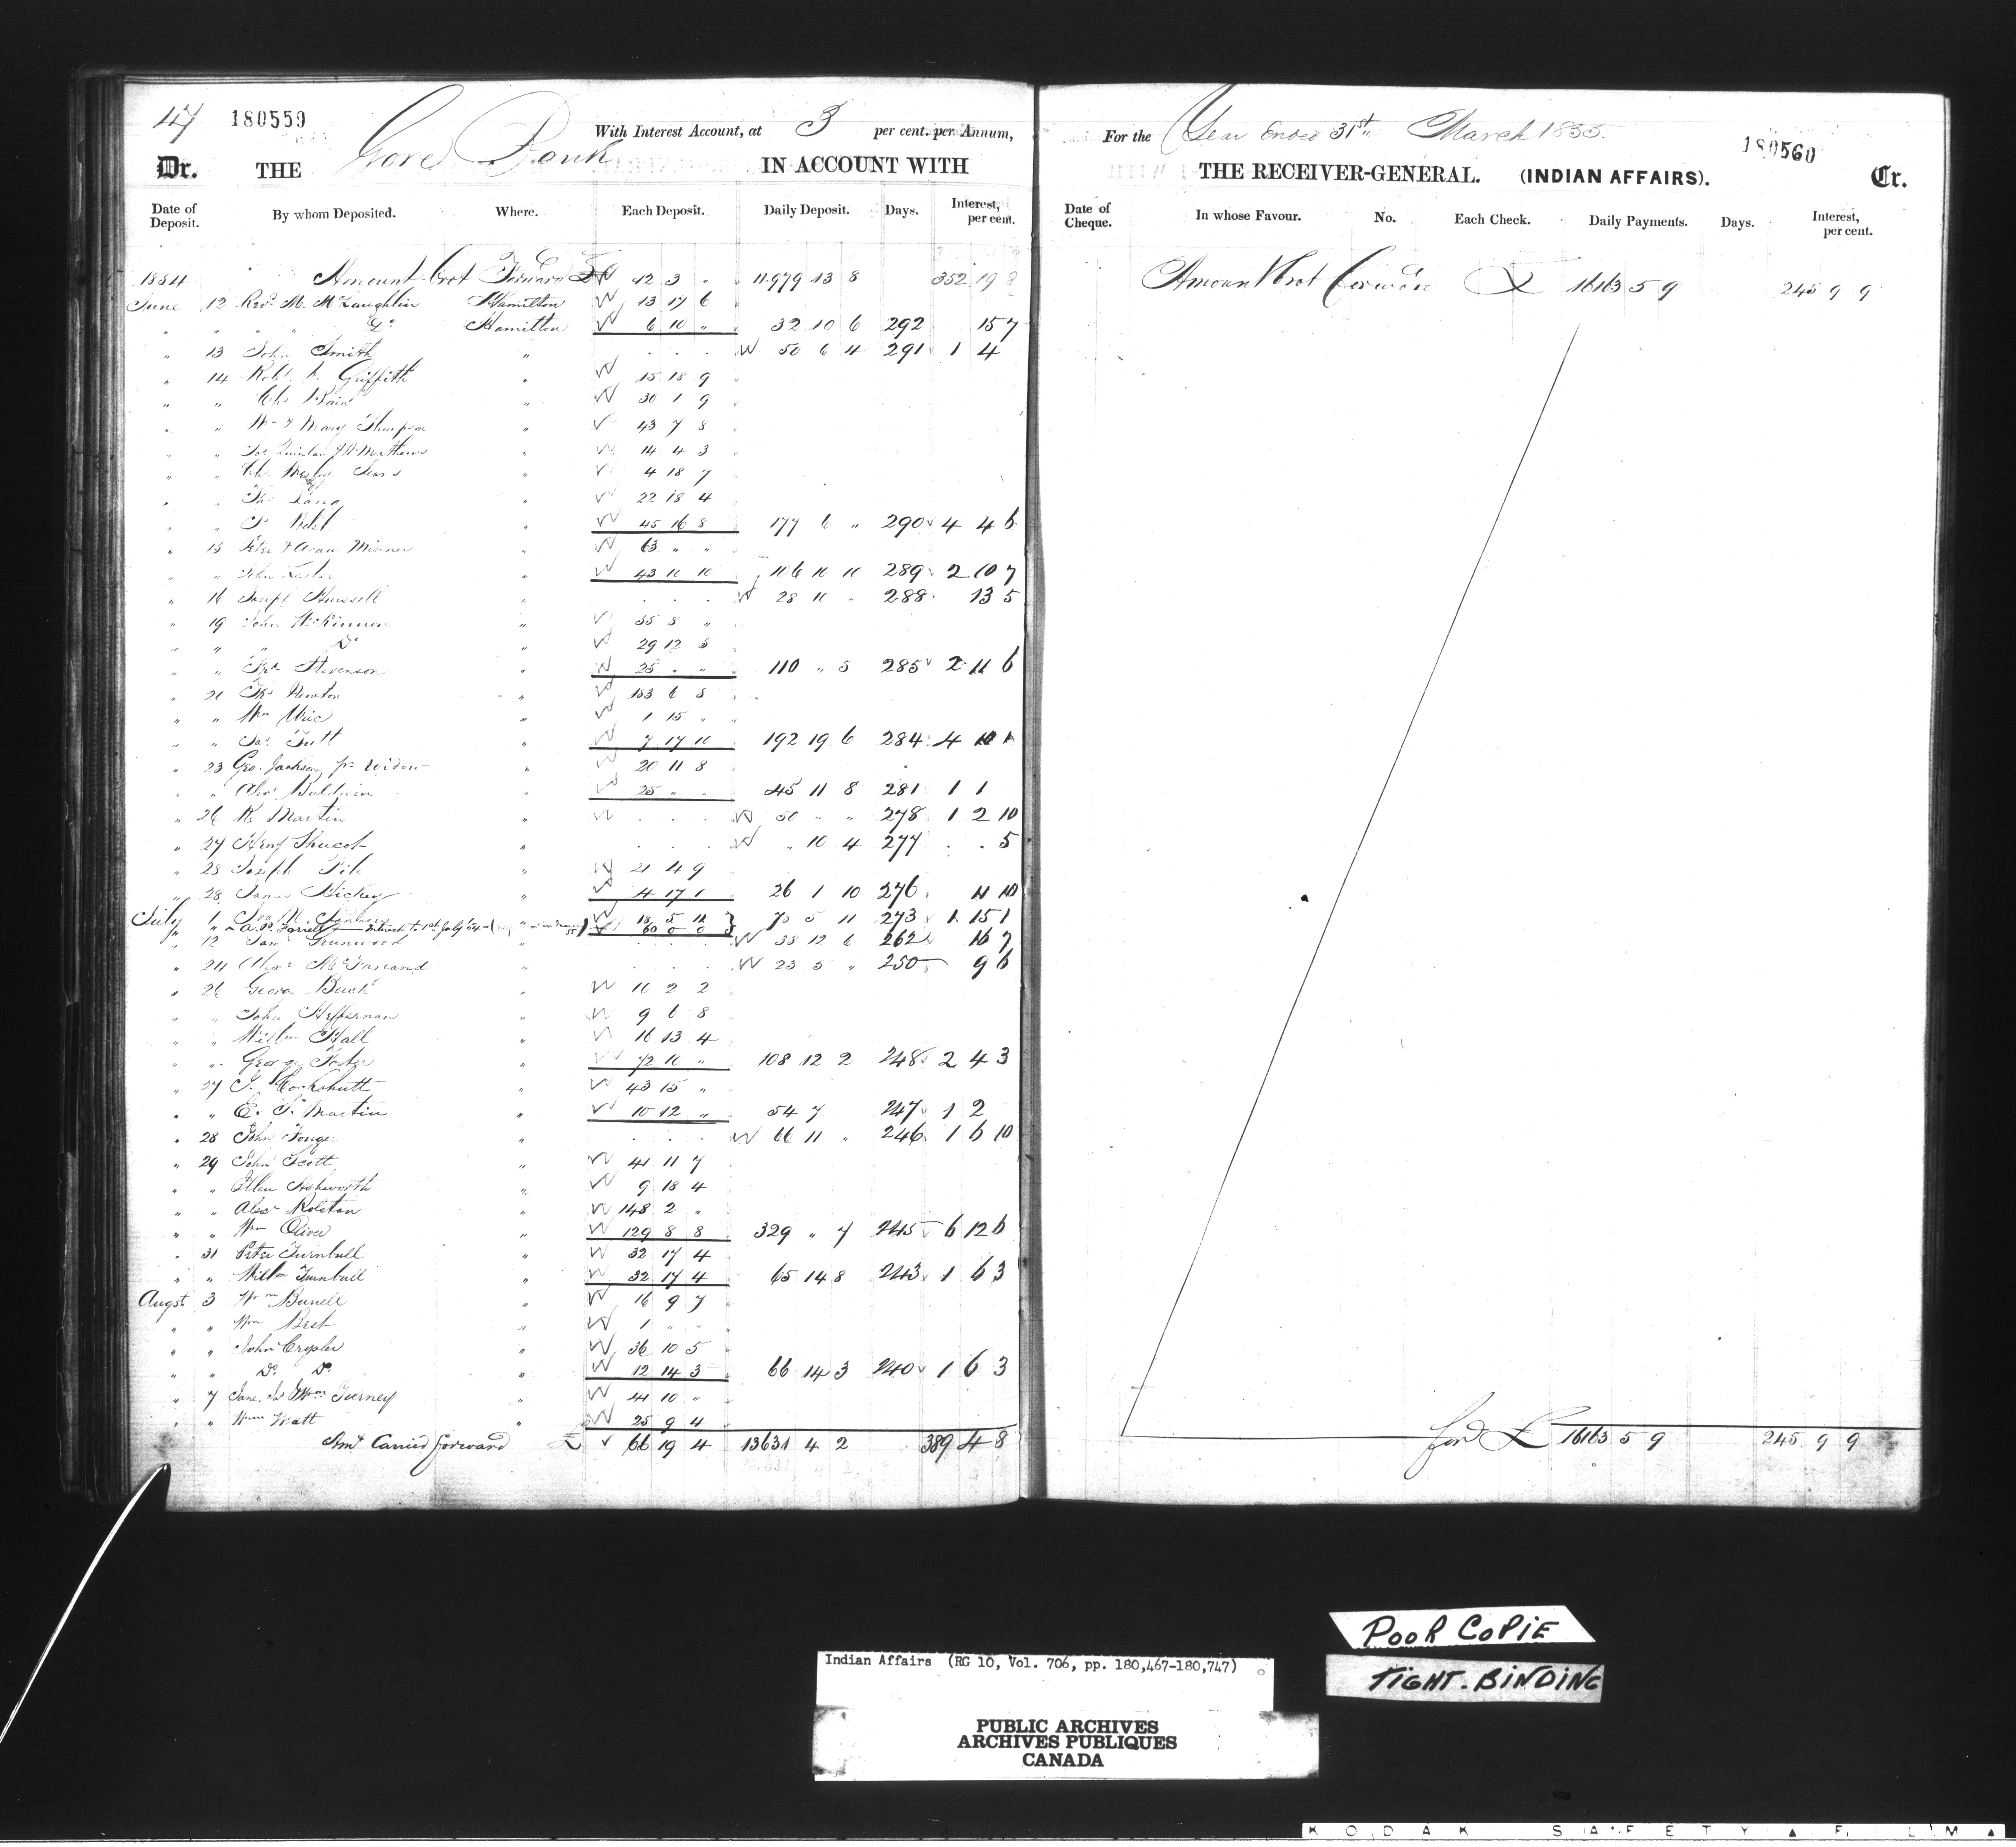 47 180559
Gore Bank With Interest Account, at 3 per cent. per Annum,
Dr. THE IN ACCOUNT WITH
Date of Deposit. By whom Deposited. Where. Each Deposit. Daily Deposit. Days. Interest, per cent.
1854 Amount brot Forward £ 12 3 " 11.979 13 8 352 19 8
June 12 Revd. M. McLaughlin Hamilton 13 17 6
" " " Do Hamilton 6 10 " 32 10 6 292 15 7
" 13 John Smith " 50 6 4 291 1 4
" 14 Robt. Griffith " 15 18 9
" " Chs Bain " 30 1 9
" " Wm & Mary Thompson " 43 7 8
" " Jas Quinlan & Mathews " 14 4 3
" " Chs Sears " 4 18 7
" " Ths Lang " 22 18 4
" " " 45 16 8 177 6 " 290 4 4 6
" 15 Peter & Adam Misener " 63 " "
" " John Lester " 43 10 10 106 10 10 289 2 10 7
" 16 Joseph " 28 10 " 288 13 5
" 19 John McKinnon " 55 8 "
" " " Do " 29 12 5
" " Stevenson " 25 " " 110 " 5 285 2 11 6
" Ths Newton " 183 6 8
" " Wm " 1 15 "
" " Jas Tutt " 7 17 10 192 19 6 284 4 10 1
" 23 Geo. Jackson, pr Widow " 20 11 8
" " Baldwin " 25 " " 45 11 8 281 1 1
" 26 R Martin " 50 " " 278 1 2 10
" 27 Heny " " 10 4 277 . . 5
" 28 Joseph Pile " 21 4 9
" 28 James Hickey " 4 17 1 26 1 10 276 11 10
July 1 " 18 5 11 78 5 11 273 1 15 1
" " A. P. Farrell Interest to 1st July 54 60 0 0
" 12 Saml Grunwood 38 12 6 262 16 7
" 24 Alexr McFarland " 23 5 " 250 9 6
" 26 George Buck " 10 2 2
" " John Heffernan " 9 6 8
" " Willm Hall " 16 13 4
" " George Foster " 72 10 " 108 12 2 248 2 4 3
" 27 I. Cockshutt " 43 15 "
" " E. T. Martin " 10 12 " 54 7 247 1 2
" 28 John Fonger " 66 11 " 246 1 6 10
" 29 John Scott " 41 11 7
" " Ellen Ashworth " 9 18 4
" " Alexr Rolston " 148 2 "
" " Wm Oliver " 129 8 8 329 " 7 245 6 12 6
" 31 Peter Turnbull " 32 17 4
" " Willm Turnbull " 32 17 4 65 14 8 243 1 6 3
Augst 3 Wm Bunell " 16 9 7
" " Wm Best " 1 " "
" " John Crysler " 36 10 5
" " Do Do " 12 14 3 66 14 3 240 1 6 3
" 7 Jane, Js & Wm Tierney " 41 10 "
" " Wm Watt " 25 9 4
Amt Carried forward £ 66 19 4 13631 4 2 389 4 8
For the Year Ended 31st March 1855. 180560
THE RECEIVER-GENERAL. (INDIAN AFFAIRS). Cr.
Date of Cheque. In whose Favour. No. Each Check. Daily Payments. Days. Interest, per cent.
Amount brot Forward £ 16163 5 9 245 9 9
ford £ 16163 5 9 245 9 9
POOR COPIE
TIGHT.BINDING
Indian Affairs (RG 10, Vol. 706, pp. 180,467-180,747)
PUBLIC ARCHIVES
ARCHIVES PUBLIQUES
CANADA
KODAK SAFETY FILM